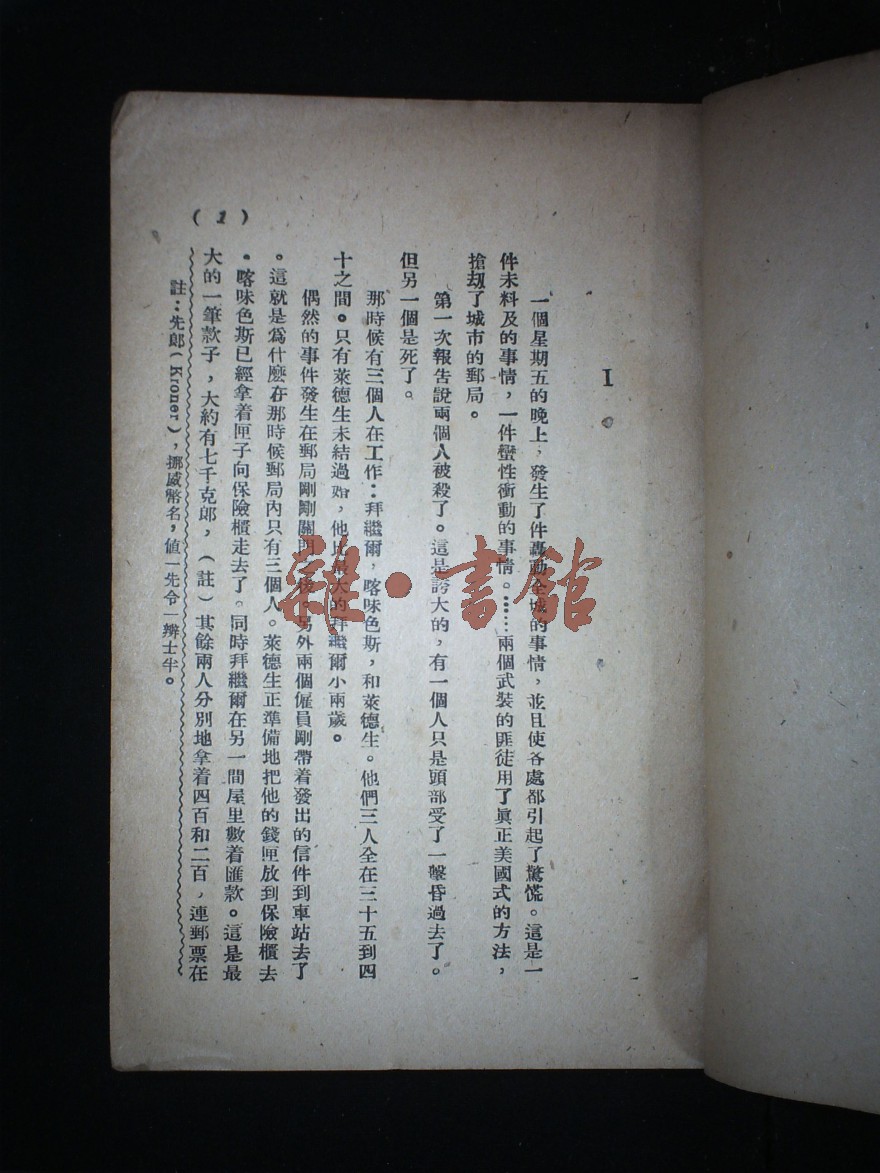 I
一個星期五的晚上，發生了件轟動全城的事情，並且使各處都引起了驚慌。這是一
件未料及的事情，一件蠻性衝動的事情。……兩個武裝的匪徒用了眞正美國式的方法，
搶刼了城市的郵局。
第一次報告說兩個人被殺了。這是誇大的，有一個人只是頭部受了一擊昏過去了。
但另一個是死了。
那時候有三個人在工作：拜繼爾，喀味色斯，和萊德生。他們三人全在三十五到四
十之間。只有萊德生未結過婚，他比最大的拜繼爾小兩歲。
偶然的事件發生在郵局剛剛關門後。另外兩個僱員剛帶着發出的信件到車站去了
。這就是爲什麽在那時候郵局內只有三個人。萊德生正準備地把他的錢匣放到保險櫃去
。喀味色斯已經拿着匣子向保險櫃走去了。同時拜繼爾在另一間屋里數着匯款。這是最
大的一筆款子，大約有七千克郎，（註）其餘兩人分別地拿着四百和二百，連郵票在
註：先郎（Kroner），挪威幣名，值一先令一辨士半。
(1)
雜·書館